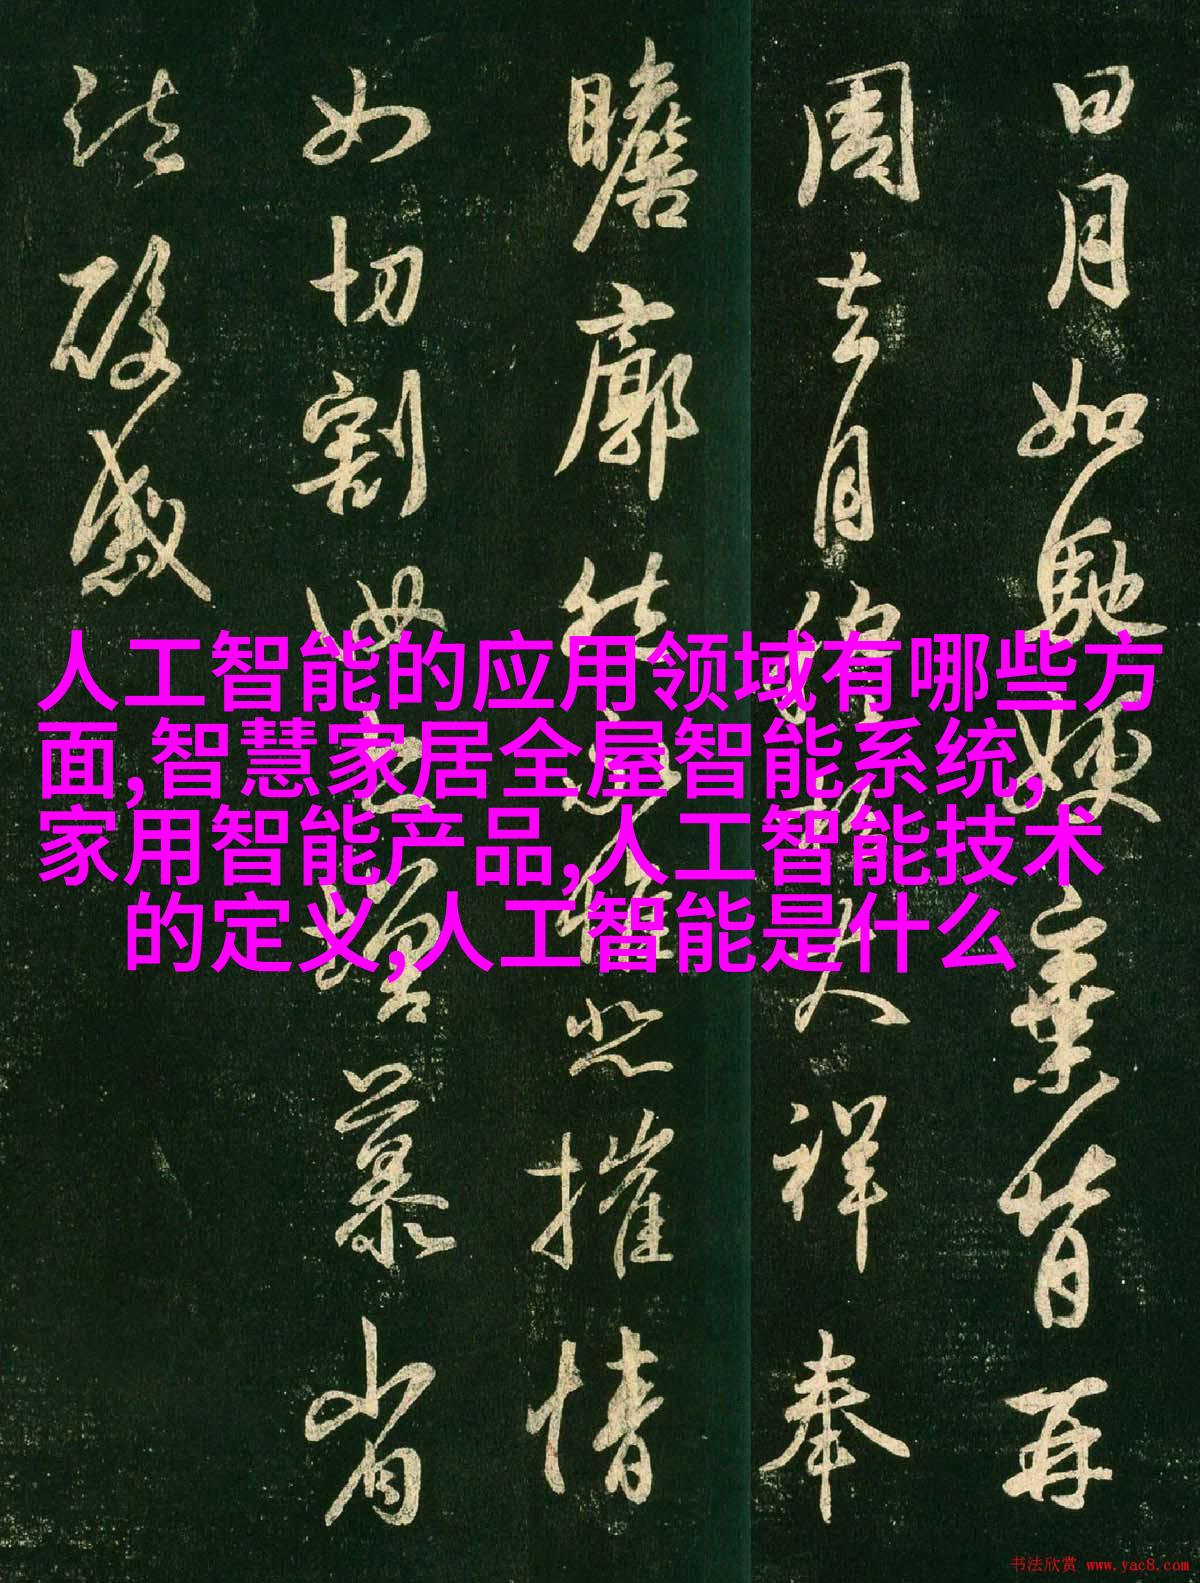 日月如馳嫂棄背再
周去月終大祥奉
瞻廓然永惟悲摧情
如切割省
法殿感
人工智能的应用领域有哪些方
面,智慧家居全屋智能系统,
家用智能产品,人工智能技术
的定义,人工智能是什么
书法欣赏 www.yac8.com